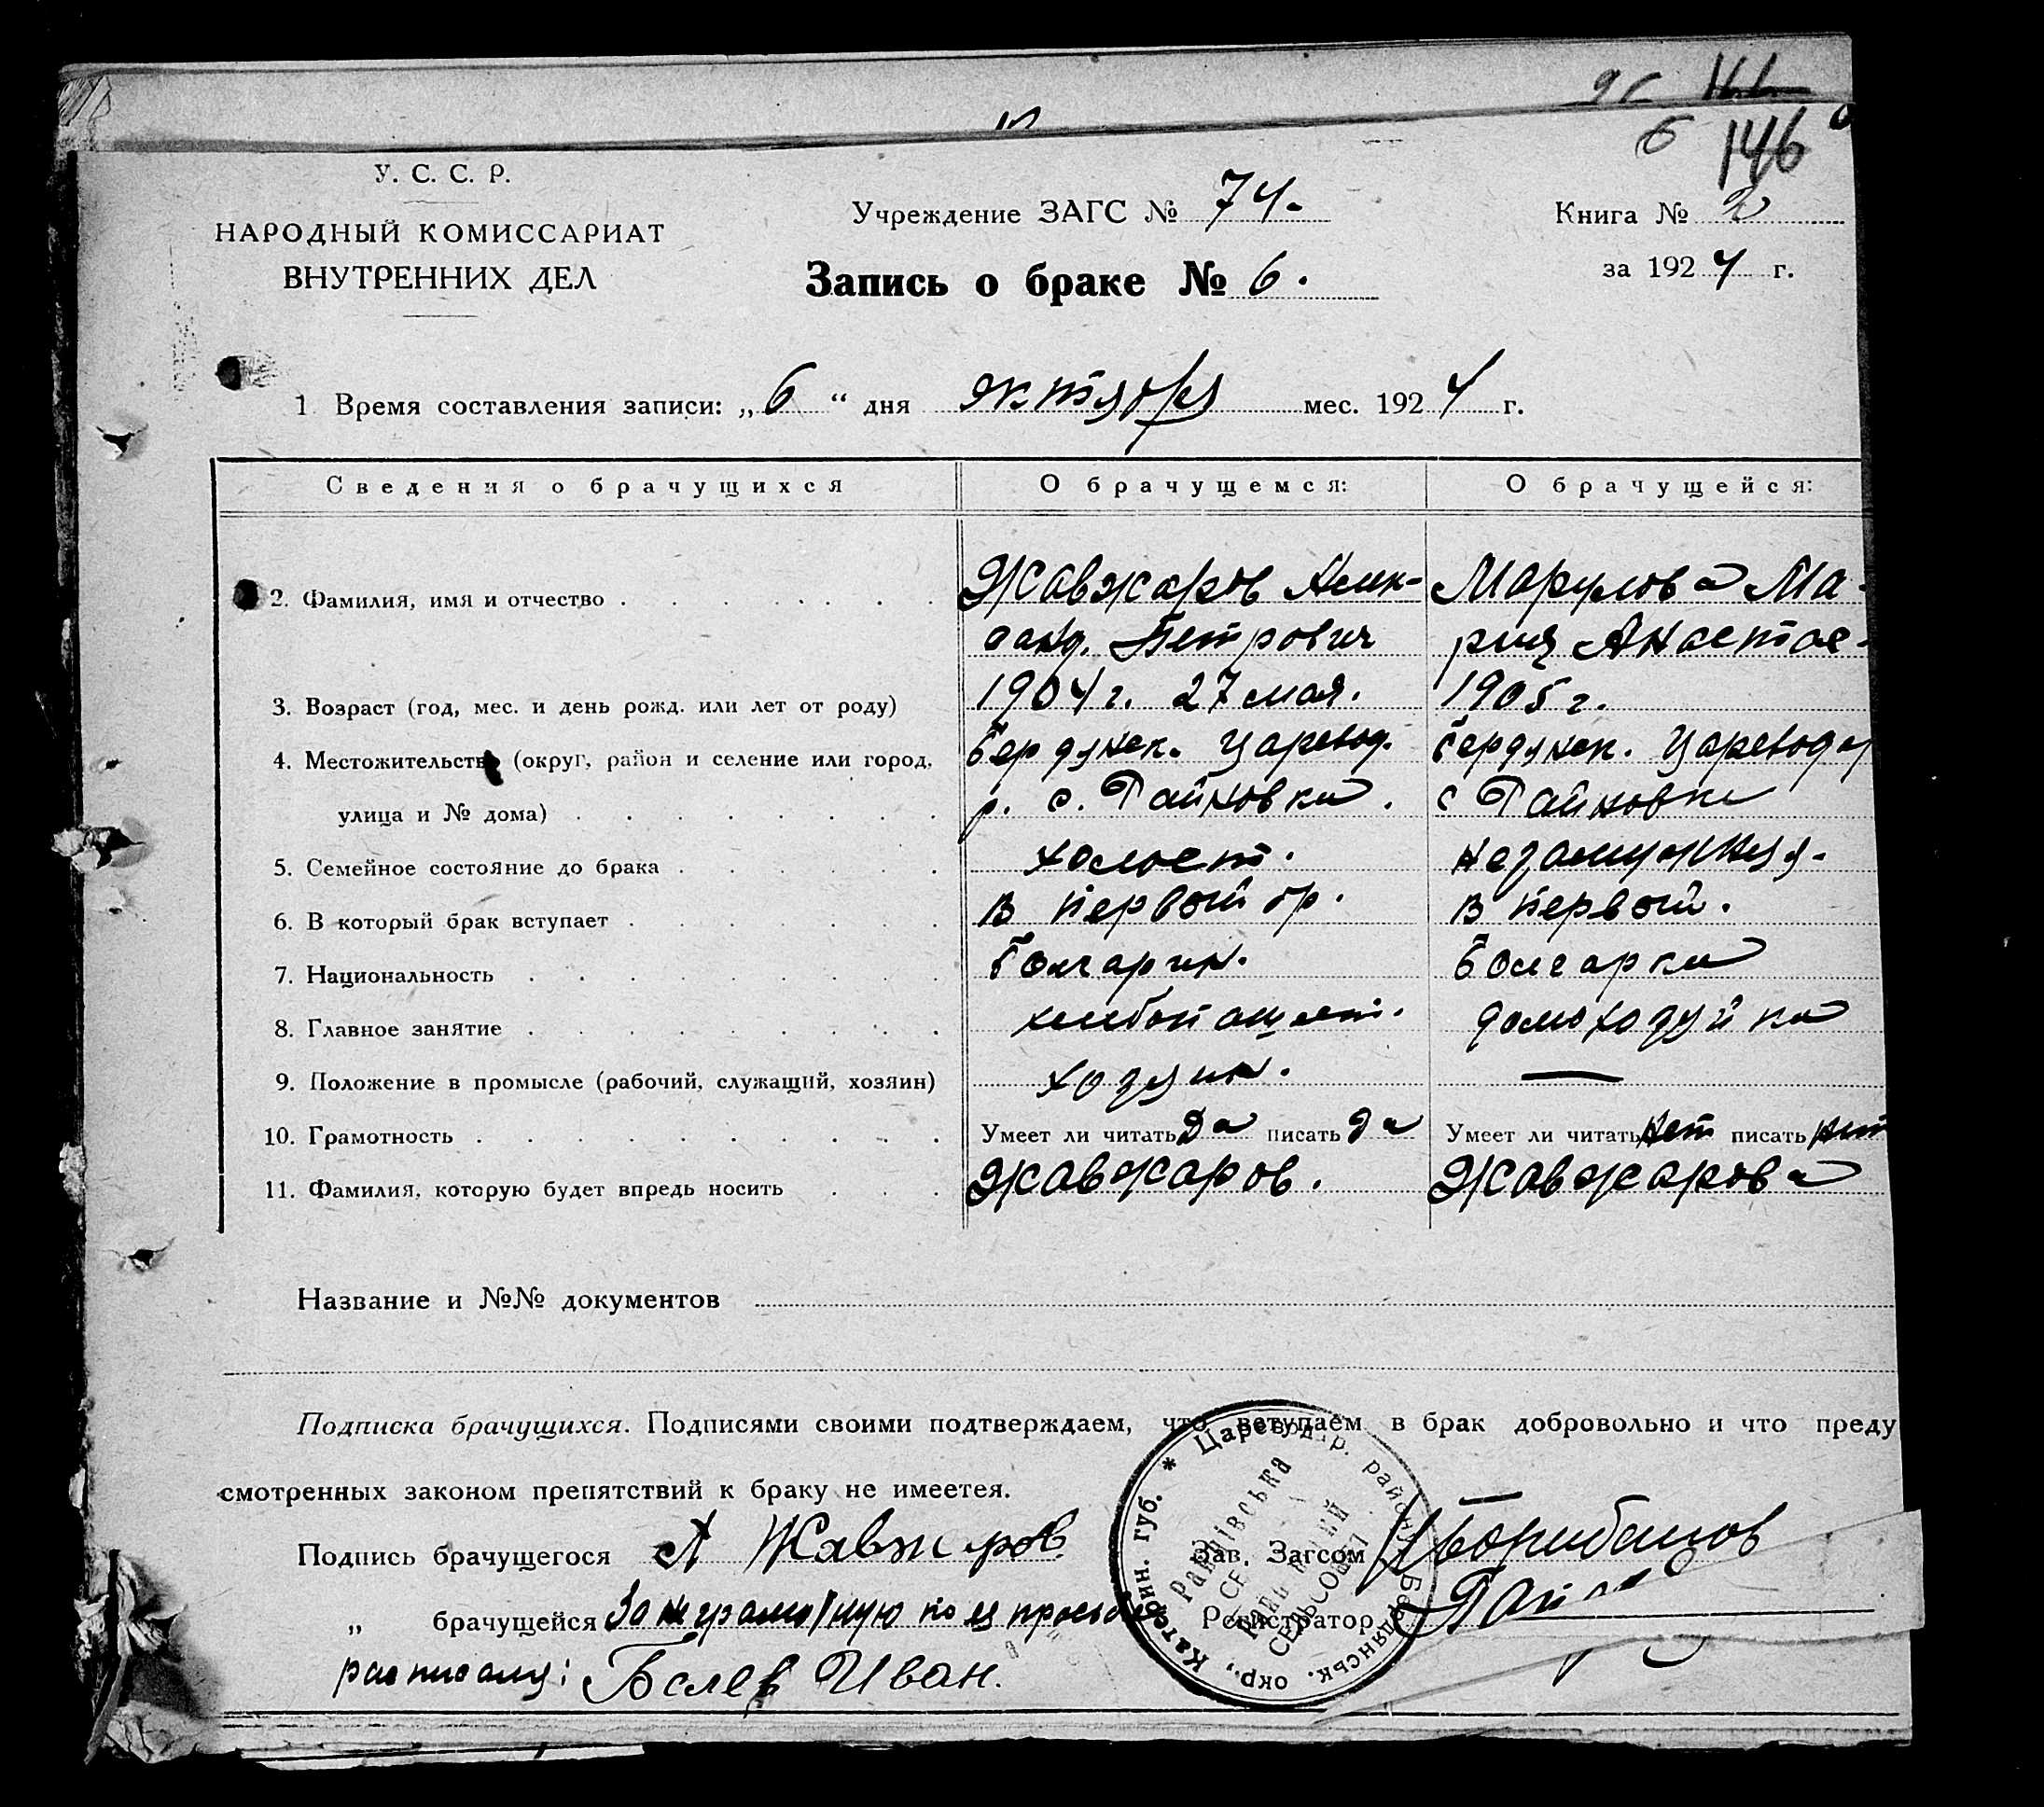 146
У. С. С. Р.
НАРОДНЫЙ КОМИССАРИАТ
ВНУТРЕННИХ ДЕЛ
Учреждение ЗАГС № 74.
Книга № 2
за 1924 г.
Запись о браке № 6.
1 Время составления записи: „6“ дня октября мес. 1924 г.
Сведения о брачущихся О брачущемся: О брачущейся:
2. Фамилия, имя и отчество Жавжаров Алек- Марулова Ма-
санд. Петрович рия Анастас-
3. Возраст (год, мес. и день рожд. или лет от роду) 1904 г. 27 мая. 1905 г.
4. Местожительство (округ, район и селение или город, Бердянск. Царевод. Бердянск. Царевод р
улица и № дома) р. с. Райновка. с Райновка
5. Семейное состояние до брака холост. незамужняя.
6. В который брак вступает В первый бр. В первый.
7. Национальность Болгарин. Болгарка
8. Главное занятие хлебопашест. домохозуйка
9. Положение в промысле (рабочий, служащий, хозяин) хозяин. —
10. Грамотность Умеет ли читать Да писать да Умеет ли читать нет писать нет
11. Фамилия, которую будет впредь носить Жавжаров. Жавжарова
Название и №№ документов
Подписка брачущихся. Подписями своими подтверждаем, что вступаем в брак добровольно и что преду
смотренных законом препятствий к браку не имеется.
Подпись брачущегося А Жавжаров. Зав. Загсом
„ брачущейся За неграмотную по ея просьбе Регистратор
расписался: Белев Иван.
* Царевод-р. район, Бердянськ. окр., Катерин. губ.
СЕЛЬСОВЕТ